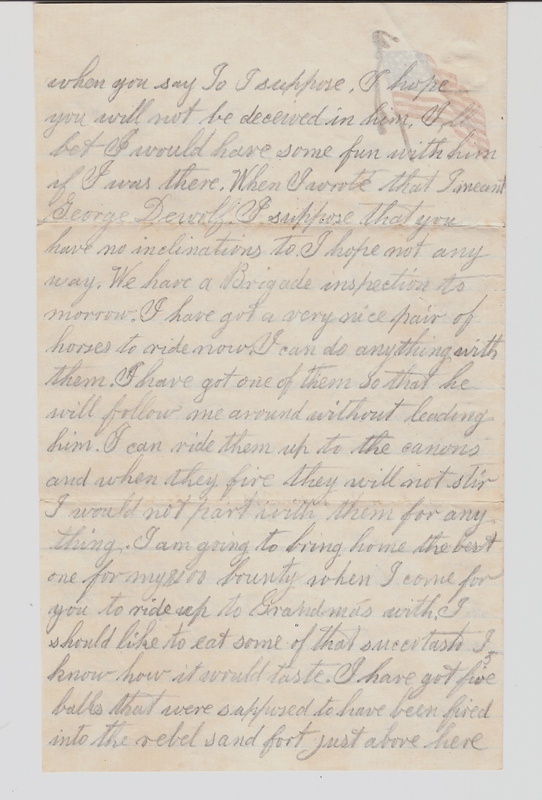 when you say Jo I suppose. I hope
you will not be deceived in him. I,ll
bet I would have some fun with him
if I was there. When I wrote that I meant
George Dewolf I suppose that you
have no inclinations to. I hope not any
way. We have a Brigade inspection to
morrow. I have got a very nice pair of
horses to ride now I can do anything with
them. I have got one of them so that he
will follow me around without leading
him. I can ride them up to the canons
and when they fire they will not stir
I would not part with them for any
thing. I am going to bring home the best
one for my bounty when I come for
you to ride up to Grandmas with. I
should like to eat some of that succertash I
know how it would taste. I have got five
balls that were supposed to have been fired
into the rebel sand fort just above here